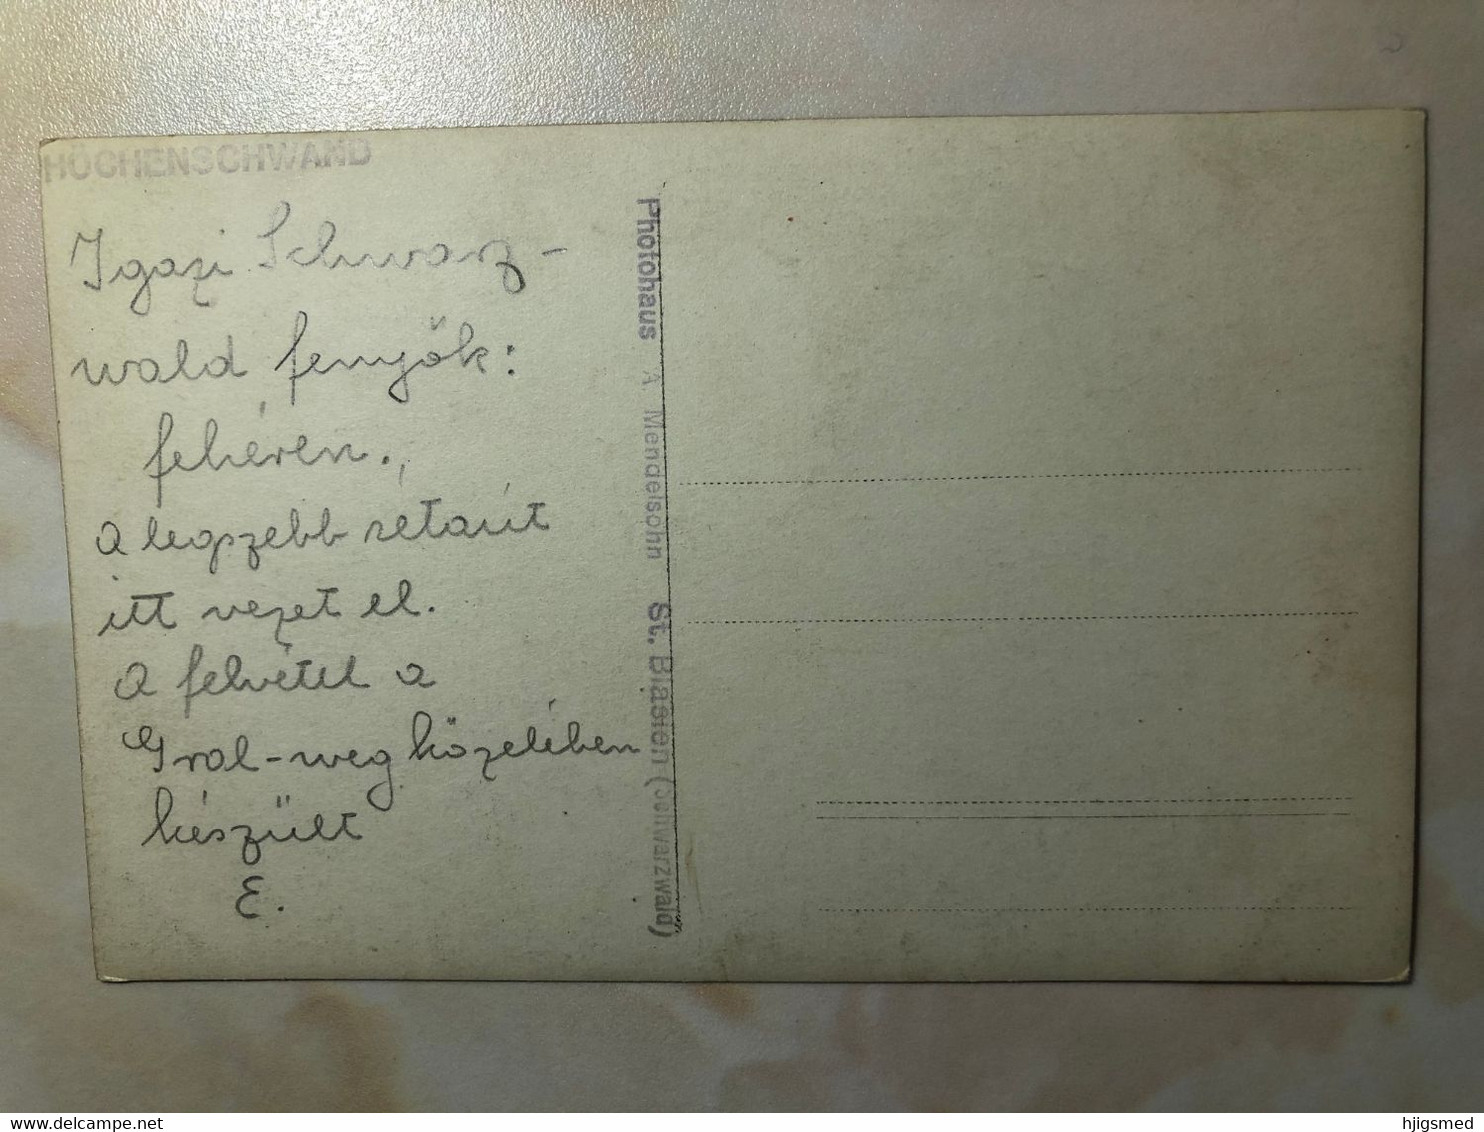 HÖCHENSCHWAND
Igazi Schwarz-
wald fenyők:
fehéren.,
A legszebb sétaút
itt vezet el.
A felvétel a
Gral-weg közelében
készült
E.
Photohaus A Mendelsohn St. Blasien (Schwarzwald)
www.delcampe.net
hjlgsmed